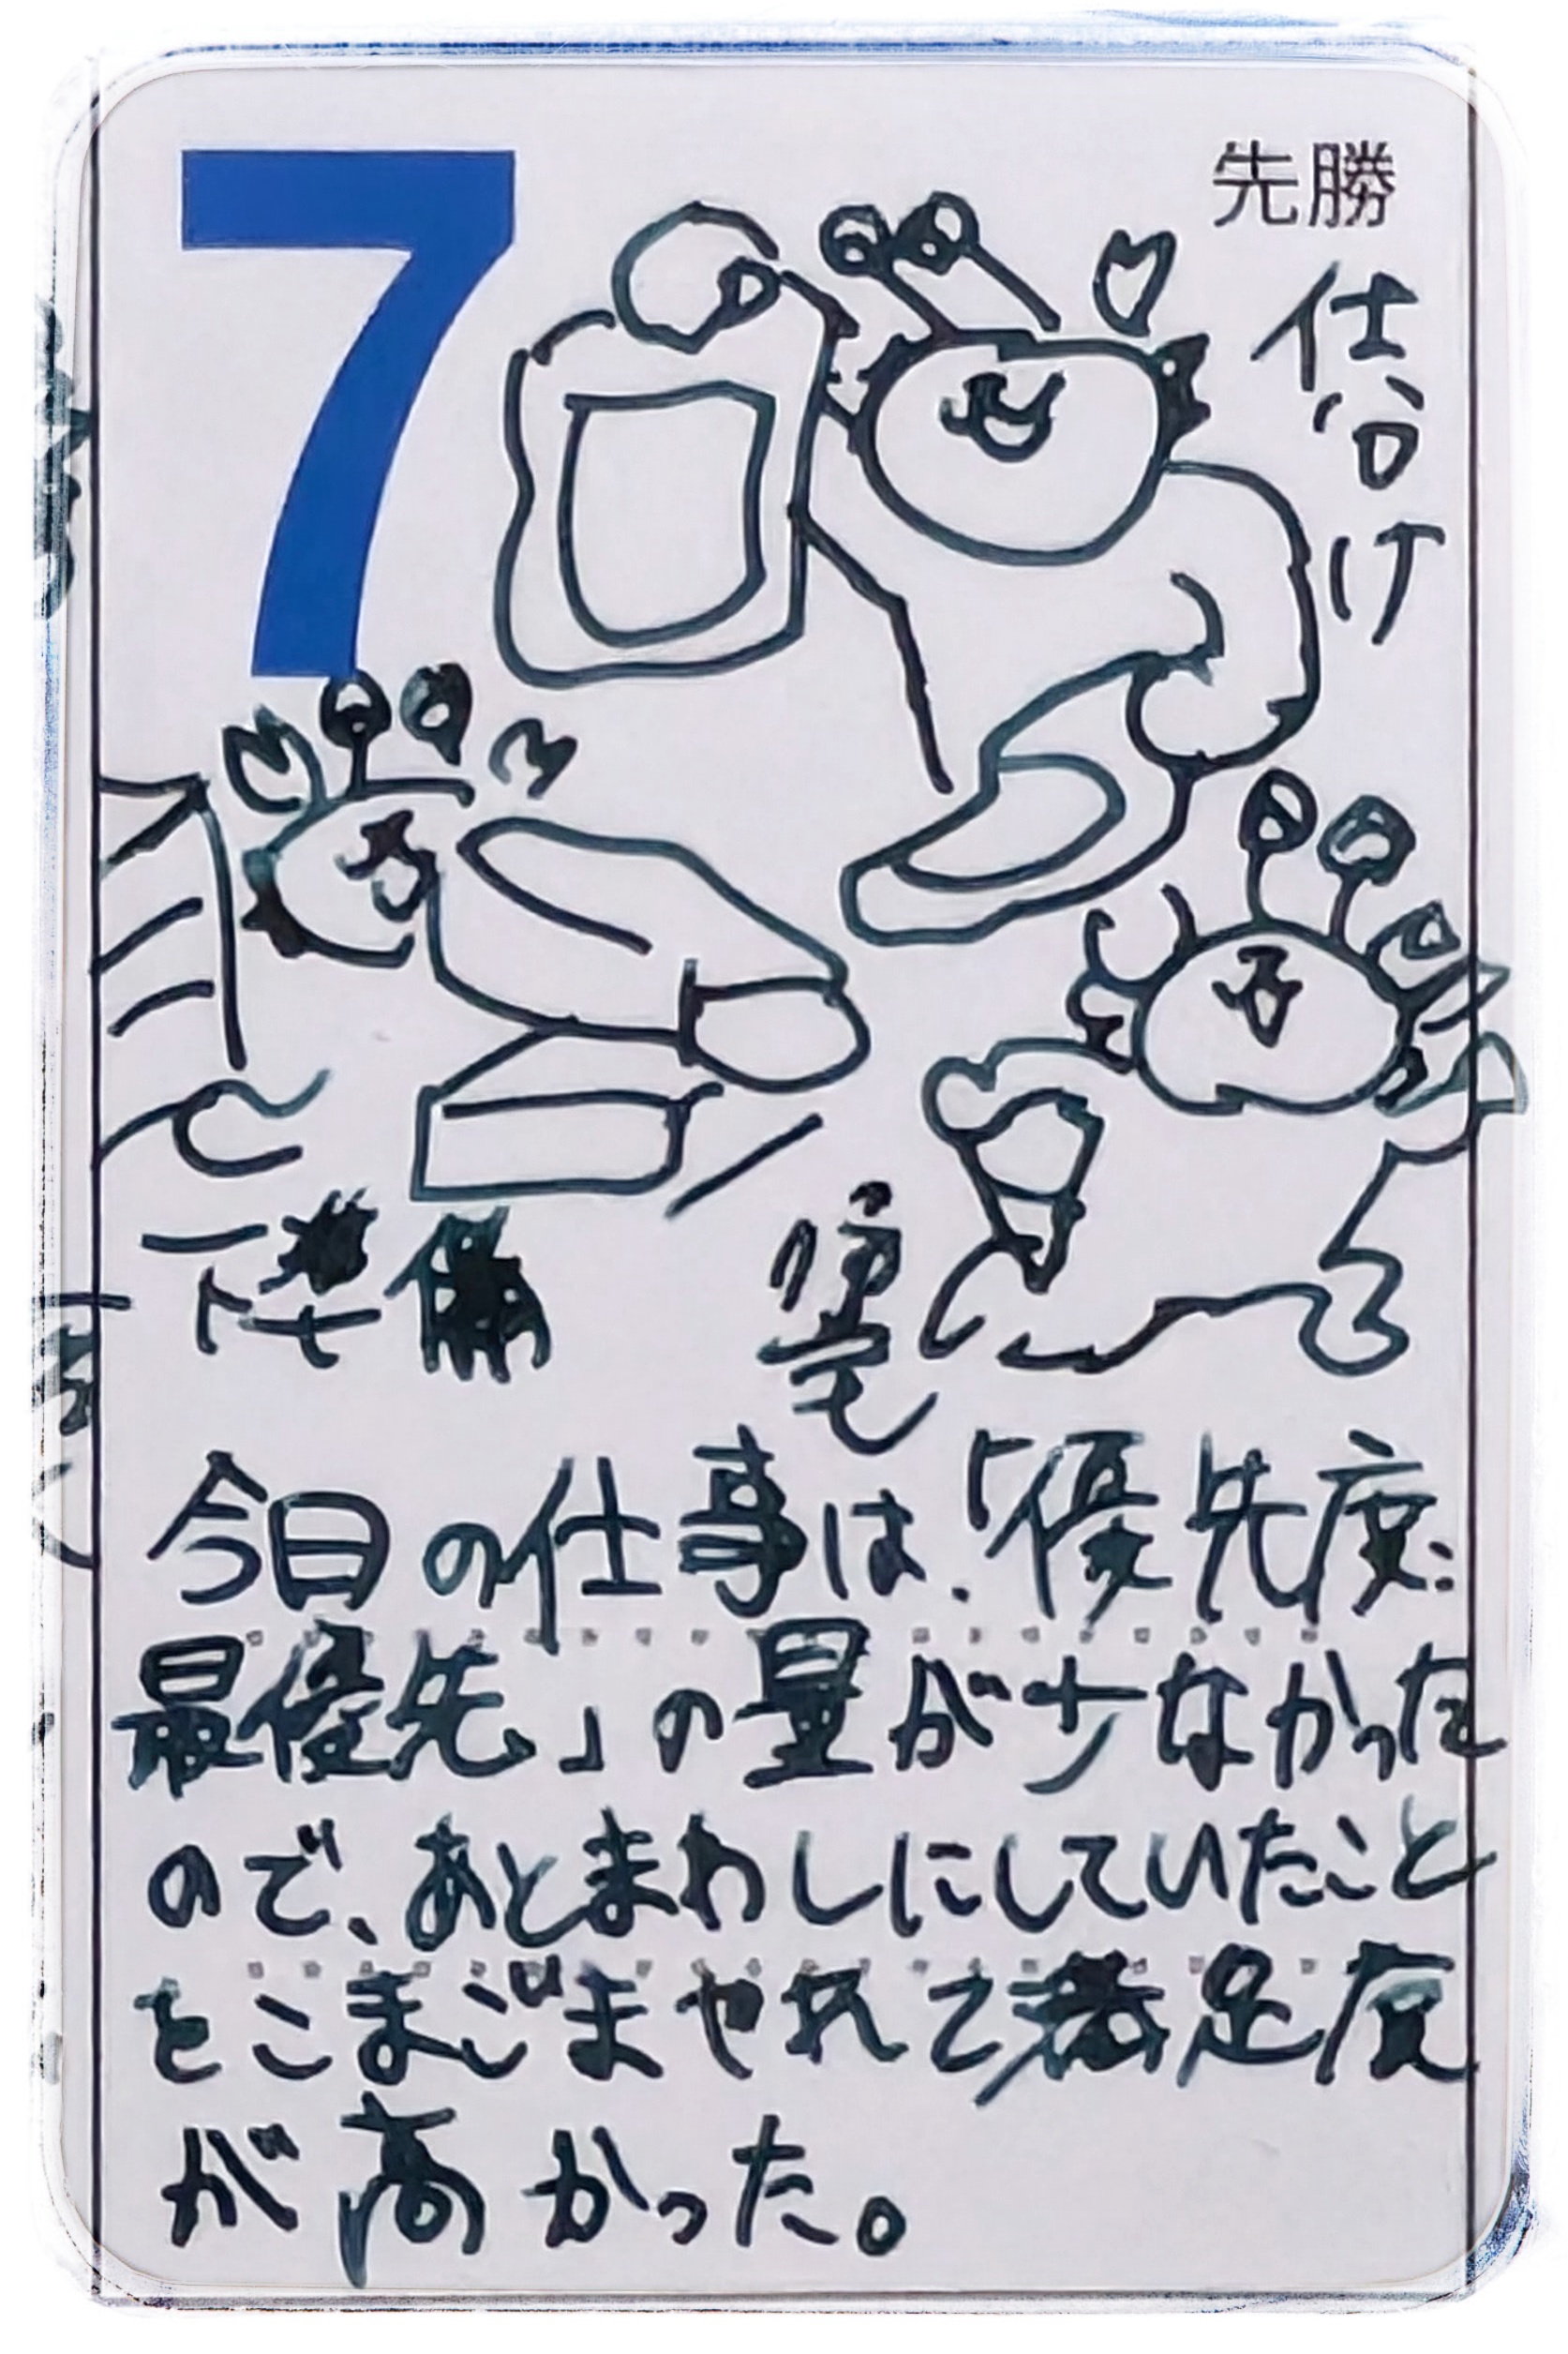 7
先勝
仕分け
下準備
帰宅
今日の仕事は、「優先度:
最優先」の量が少なかった
ので、あとまわしにしていたこと
をこまごまやれて満足度
が高かった。